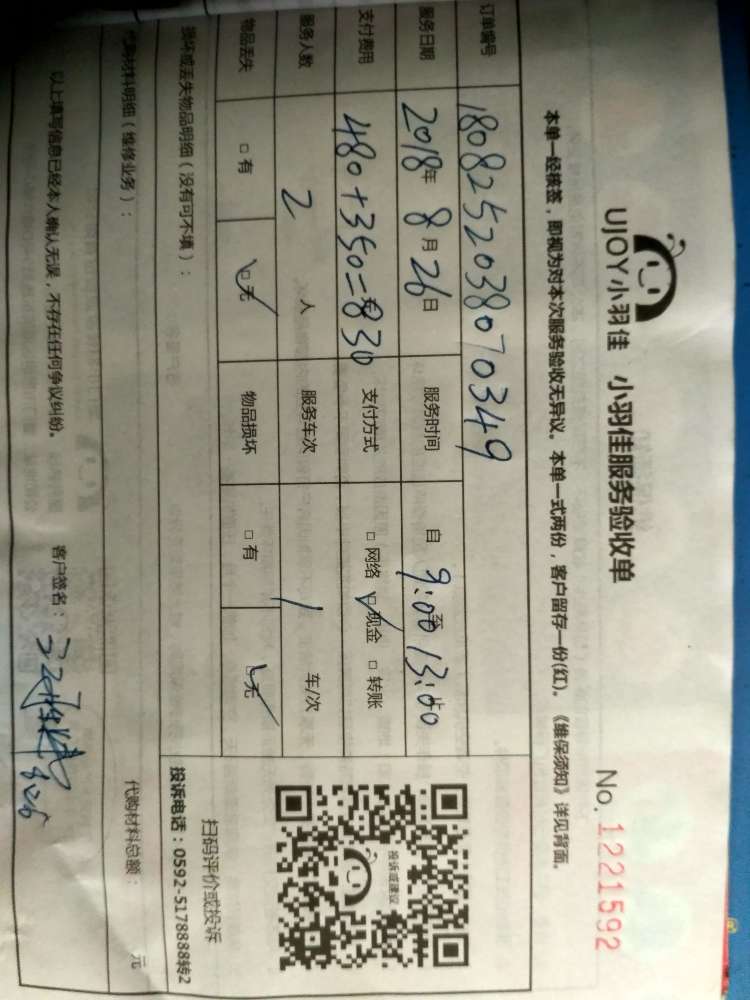 UJOY小羽佳 小羽佳服务验收单 No. 1221592
本单一经核签，即视为对本次服务验收无异议。本单一式两份，客户留存一份(红)。《维保须知》详见背面。
订单编号 180825203807034９
服务日期 2018年 8月 26日 服务时间 自 9:00 至 13:00
支付费用 480+350=830 元 支付方式 □ 网络 ☑ 现金 □ 转账
服务人数 2 人 服务车次 1 车/次
物品丢失 □ 有 ☑ 无 物品损坏 □ 有 ☑ 无
损坏或丢失物品明细（没有可不填）：
投诉或建议
扫码评价或投诉
投诉电话：0592-5178888转2
代购材料明细（维修业务）： 代购材料总额： 元
以上填写信息已经本人确认无误，不存在任何争议纠纷。 客户签名：